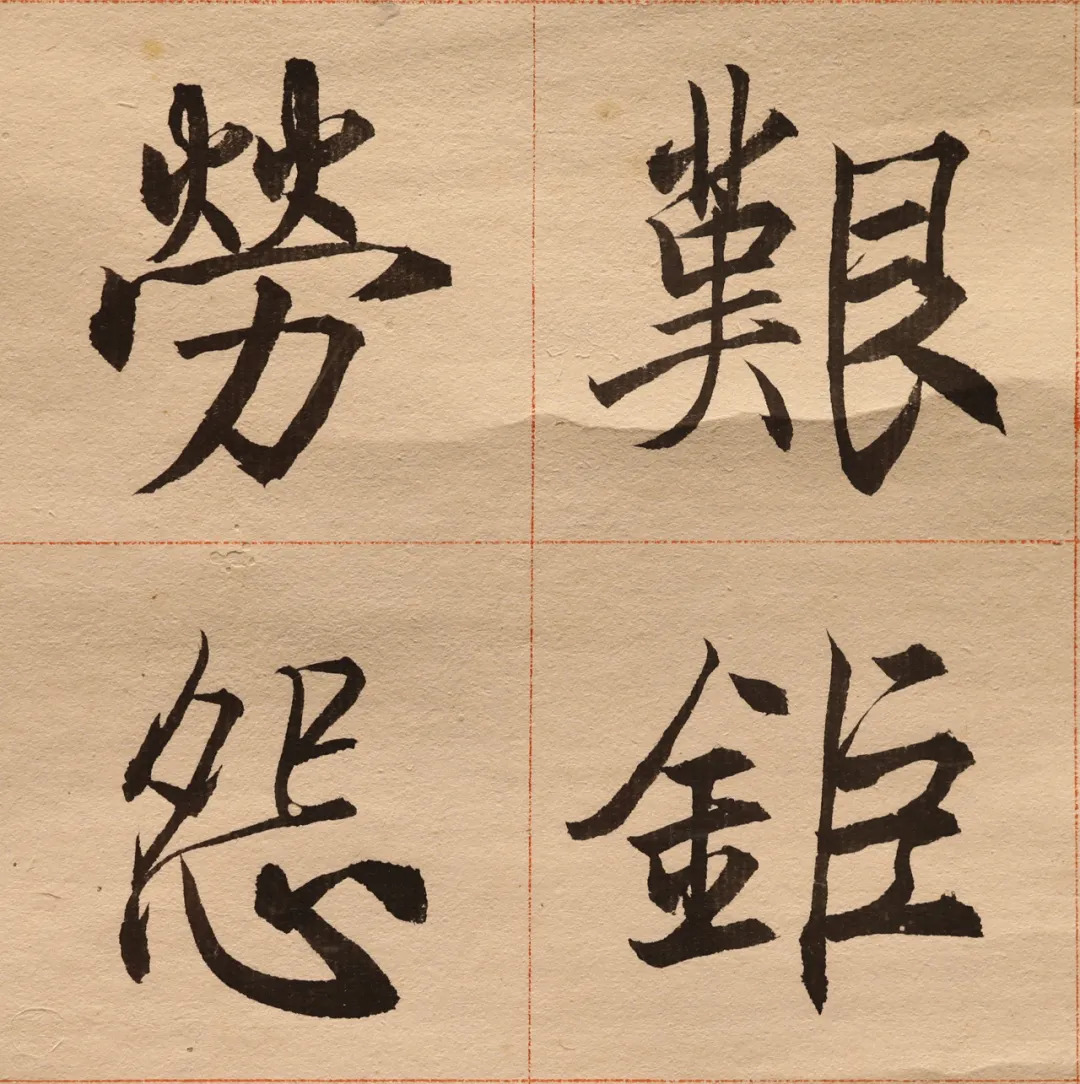 艱鉅
勞怨